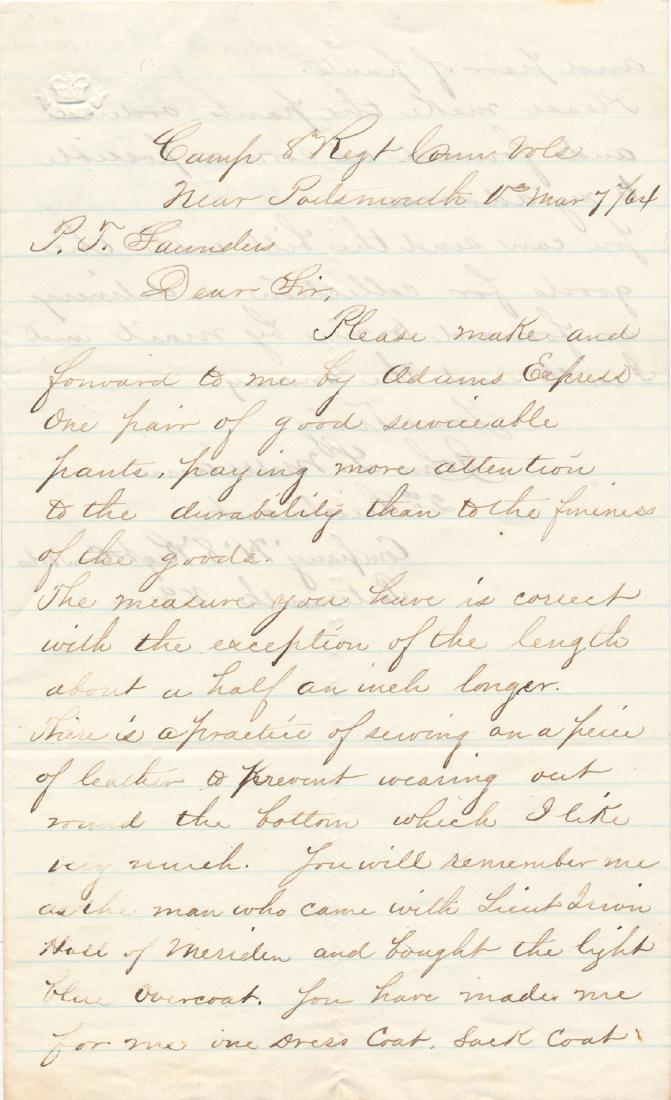 Camp 8th Regt Conn Vols
Near Portsmouth Va Mar 7/64
P. T. Saunders
Dear Sir,
Please make and
forward to me by Adams Express
one pair of good serviceable
pants, paying more attention
to the durability than to the fineness
of the goods.
The measure you have is correct
with the exception of the length
about a half an inch longer.
There is a practice of sewing on a peice
of leather to prevent wearing out
round the bottom which I like
very much. You will remember me
as the man who came with Lieut Irwin
Hall of Meriden and bought the light
blue Overcoat. You have made me
for me one Dress Coat, Sack Coat